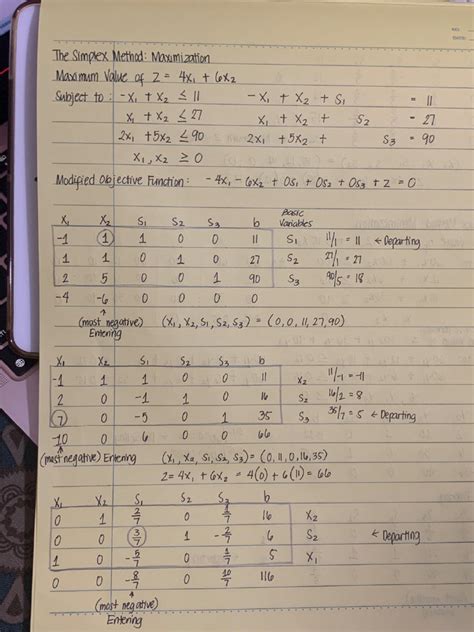 The Simplex Method: Maximization
Maximum Value of Z = 4x₁ + 6x₂
Subject to: -x₁ + x₂ ≤ 11 -x₁ + x₂ + s₁ = 11
x₁ + x₂ ≤ 27 x₁ + x₂ + s₂ = 27
2x₁ + 5x₂ ≤ 90 2x₁ + 5x₂ + s₃ = 90
x₁, x₂ ≥ 0
Modified Objective Function: -4x₁ - 6x₂ + 0s₁ + 0s₂ + 0s₃ + z = 0
x₁ x₂ s₁ s₂ s₃ b Basic Variables
-1 1 1 0 0 11 s₁ 11/1 = 11 ← Departing
1 1 0 1 0 27 s₂ 27/1 = 27
2 5 0 0 1 90 s₃ 90/5 = 18
-4 -6 0 0 0 0
↑
(most negative) (x₁, x₂, s₁, s₂, s₃) = (0, 0, 11, 27, 90)
Entering
x₁ x₂ s₁ s₂ s₃ b
-1 1 1 0 0 11 x₂ 11/-1 = -11
2 0 -1 1 0 16 s₂ 16/2 = 8
7 0 -5 0 1 35 s₃ 35/7 = 5 ← Departing
10 0 6 0 0 66
↑
(most negative) Entering (x₁, x₂, s₁, s₂, s₃) = (0, 11, 0, 16, 35)
z = 4x₁ + 6x₂ = 4(0) + 6(11) = 66
x₁ x₂ s₁ s₂ s₃ b
0 1 2/7 0 1/7 16 x₂
0 0 3/7 1 -2/7 6 s₂ ← Departing
1 0 -5/7 0 1/7 5 x₁
0 0 -8/7 0 10/7 116
↑
(most negative)
Entering